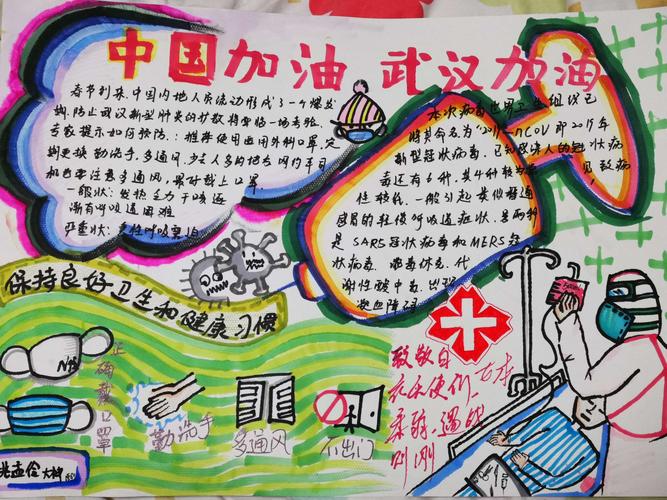 中国加油 武汉加油
春节到来,中国内地人员流动形成了一个爆发
期,防止武汉新型肺炎的扩散将面临一场考验,
专家提示如何预防:推荐使用医用外科口罩,定
期更换 勤洗手,多通风,少去人多的地方
机也要注意多通风,最好戴上口罩
一般症状:发热 乏力 干咳 逐
渐有呼吸道困难
严重状:急性呼吸窘迫
本次病毒世界卫生组织已
将其命名为"2019-nCOV 即2019年
新型冠状病毒,已知感染人的冠状病
毒还有6种,其4种较为常见 致病
性较低,一般引起类似普通
感冒的轻微呼吸道症状,另两种
是SARS冠状病毒和MERS冠
状病毒
谢性酸中毒,出现
凝血障碍
保持良好卫生和健康习惯
N95
正确戴口罩
勤洗手
多通风
不出门
致敬白
衣天使们
柔弱,遇战
则刚